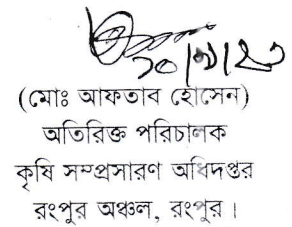 ১০/৯/২৩
(মোঃ আফতাব হোসেন)
অতিরিক্ত পরিচালক
কৃষি সম্প্রসারণ অধিদপ্তর
রংপুর অঞ্চল, রংপুর।